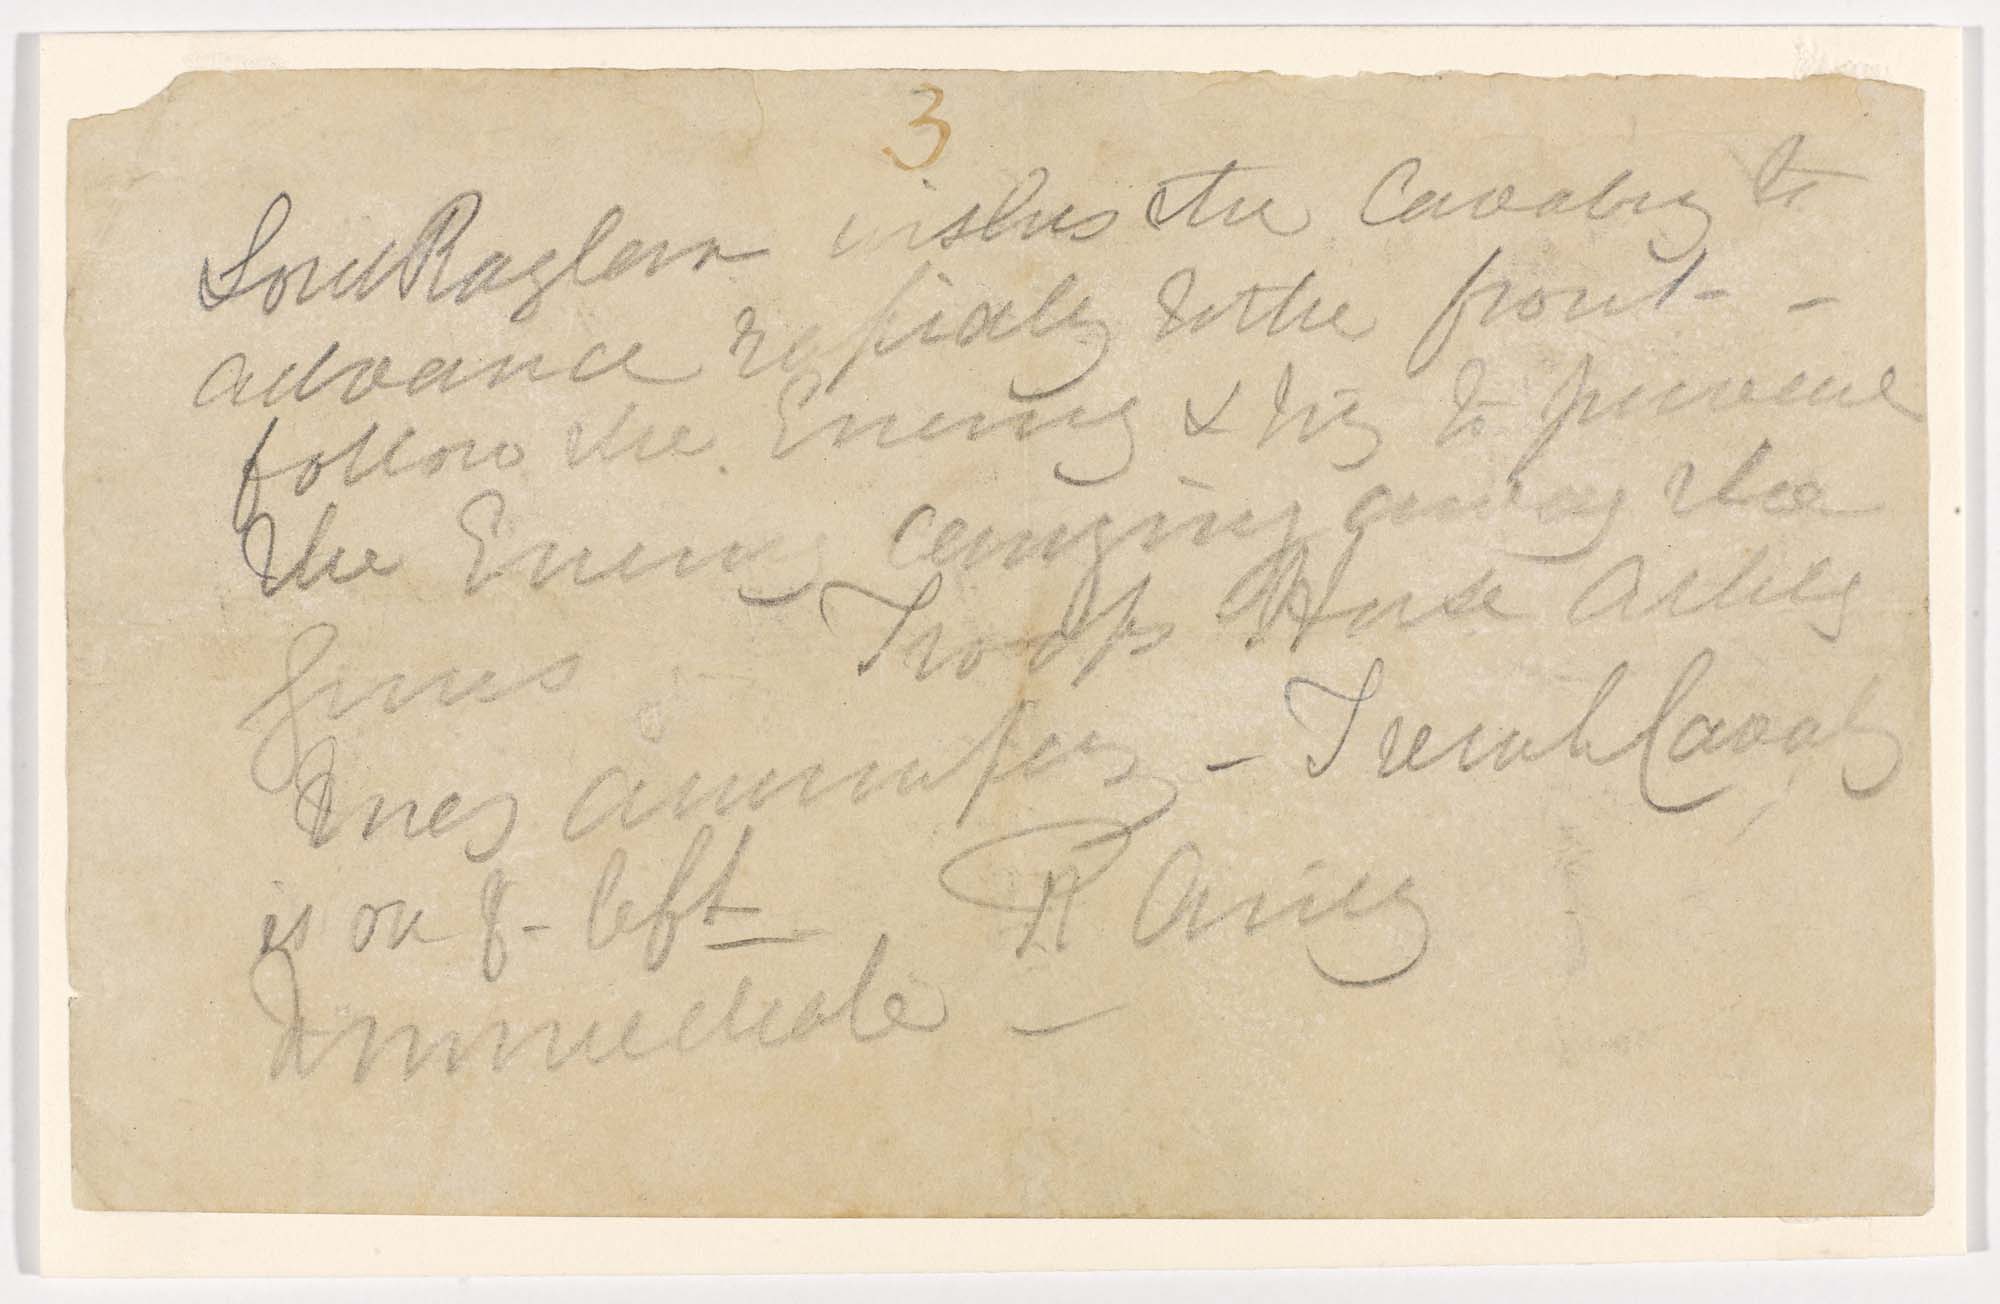 3
Lord Raglan wishes the Cavalry to
advance rapidly to the front -
follow the Enemy & try to prevent
the Enemy carrying away the
guns - Troop Horse Artly
may accompany - French Cavaly
is on yr left
R Airey
Immediate -